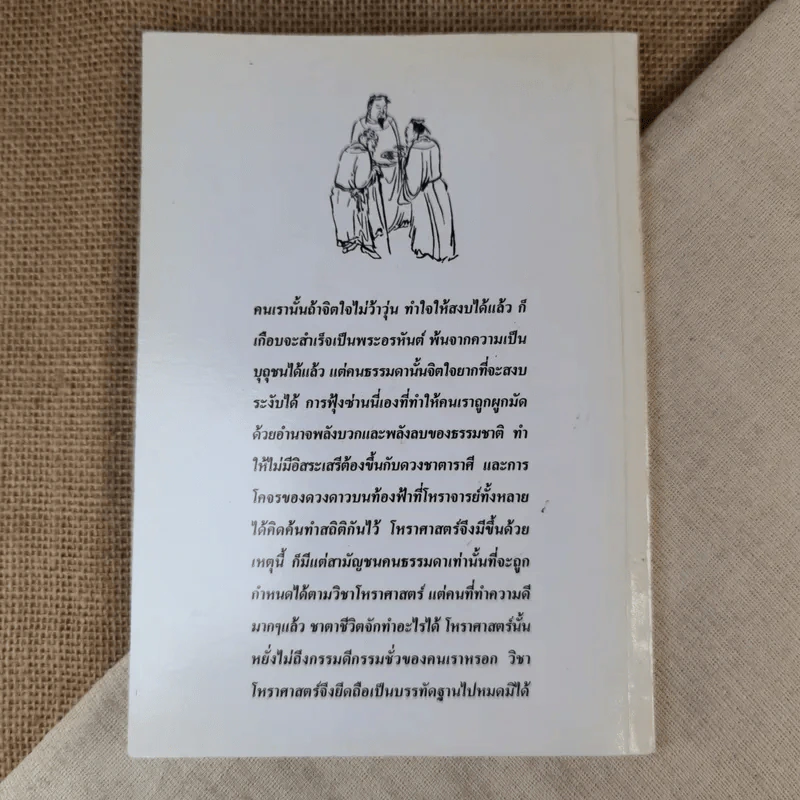 คนเรานั้นถ้าจิตใจไม่ว้าวุ่น ทำใจให้สงบได้แล้ว ก็
เกือบจะสำเร็จเป็นพระอรหันต์ พ้นจากความเป็น
บุถุชนได้แล้ว แต่คนธรรมดานั้นจิตใจยากที่จะสงบ
ระงับได้ การฟุ้งซ่านนี่เองที่ทำให้คนเราถูกผูกมัด
ด้วยอำนาจพลังบวกและพลังลบของธรรมชาติ ทำ
ให้ไม่มีอิสระเสรีต้องขึ้นกับดวงชาตาราศี และการ
โคจรของดวงดาวบนท้องฟ้าที่โหราจารย์ทั้งหลาย
ได้คิดค้นทำสถิติกันไว้ โหราศาสตร์จึงมีขึ้นด้วย
เหตุนี้ ก็มีแต่สามัญชนคนธรรมดาเท่านั้นที่จะถูก
กำหนดได้ตามวิชาโหราศาสตร์ แต่คนที่ทำความดี
มากๆแล้ว ชาตาชีวิตจักทำอะไรได้ โหราศาสตร์นั้น
หยั่งไม่ถึงกรรมดีกรรมชั่วของคนเราหรอก วิชา
โหราศาสตร์จึงยึดถือเป็นบรรทัดฐานไปหมดมิได้